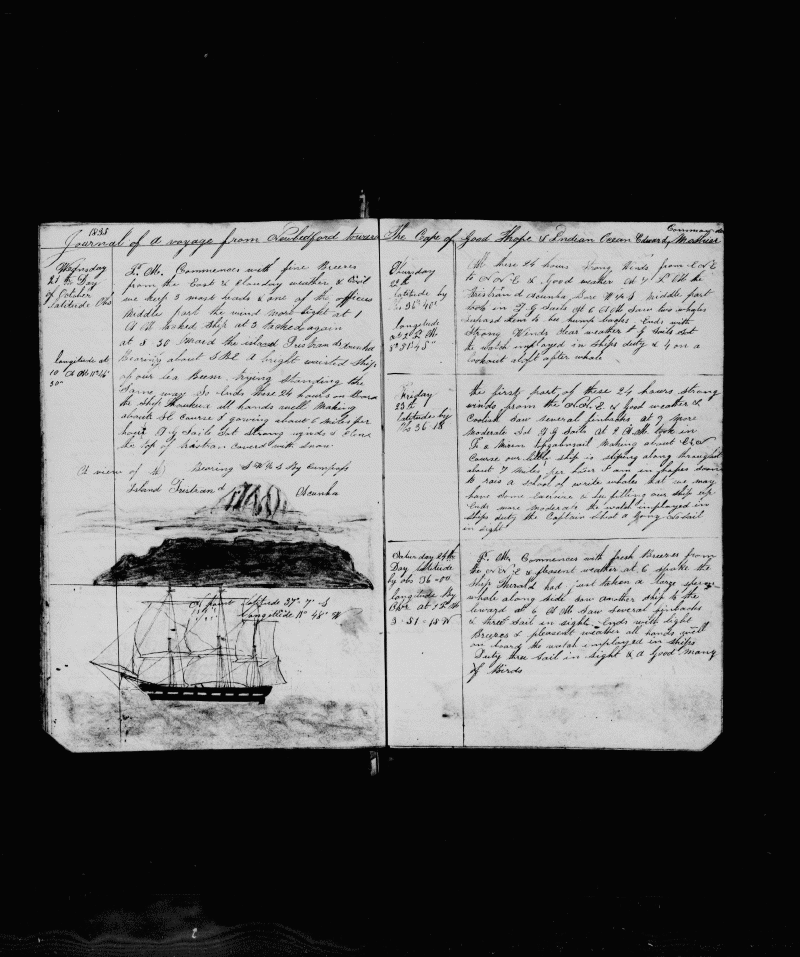 1835
Journal of a voyage from Newbedford towards The Cape of Good Hope & Indian Ocean Edward Commander
Wednsday
21st Day
of October
Latitude Obs
longitude at
10 A M 11° 46'
30"
P. M. Commences with fine Breezes
from the East & Cloudy weather &
we keep 3 mast heads & one of the officers
Middle part the wind more light at 1
A M tacked Ship at 3 tacked again
at 8 30 the island Tristran de
Bearing about S B E A bright waisted Ship
of our lea Beem, trying Standing the
Same way So Ends these 24 hours on Board
the Ship all hands well Making
about S E Course & gowing about 6 miles per
hour
the top of covered with snow
A view of the Bearing S W by Compass
Island Tristran d Acunha
At point Latitude 37° 7' S
Longitude 11° 48' W
Thursday
22th
latitude by
36° 40'
Longitude
at P M
8° 31' 45"
these 24 hours Strong Winds from
to N N E & Good weather At 7 P M the
Tristrand Acunha Bore W & S Middle part
took in T G Sails At 6 A M Saw two whales
them to be hump backs Ends with
Strong Winds weather T G Sails Set
the watch imployed in Ships duty & 4 on a
lookout aloft after whale
Friday
23th
latitude by
36 18
the first part of these 24 hours strong
winds from the N N E & Good weather &
Coolish Saw Several finbacks at 7 More
Moderate Set T G Sails at P M took in
F & Mizen topgalnsail Making about
Course our little ship is sliping along throught
about 7 Miles per hour I am in hapes soon
to rais a scool of write whales that we may
have some & in filling our ship up
Ends more moderate the watch imployed in
Ships duty the Captain
in sight
Saturday 24th
Day latitude
by obs 36-00
longitude By
Chor at P M
3-51-15 W
P. M. Commences with fresh Breezes from
the N N E & pleasent weather at 6 spoke the
Ship Herald had just taken a large sperm
whale along side Saw another Ship to the
leward at 6 A M Saw Several finbacks
& three Sail in sight Ends with light
Breezes & pleasent weather all hands well
on board the watch imployed in Ships
Duty three Sail in Sight & a Good many
of Birds